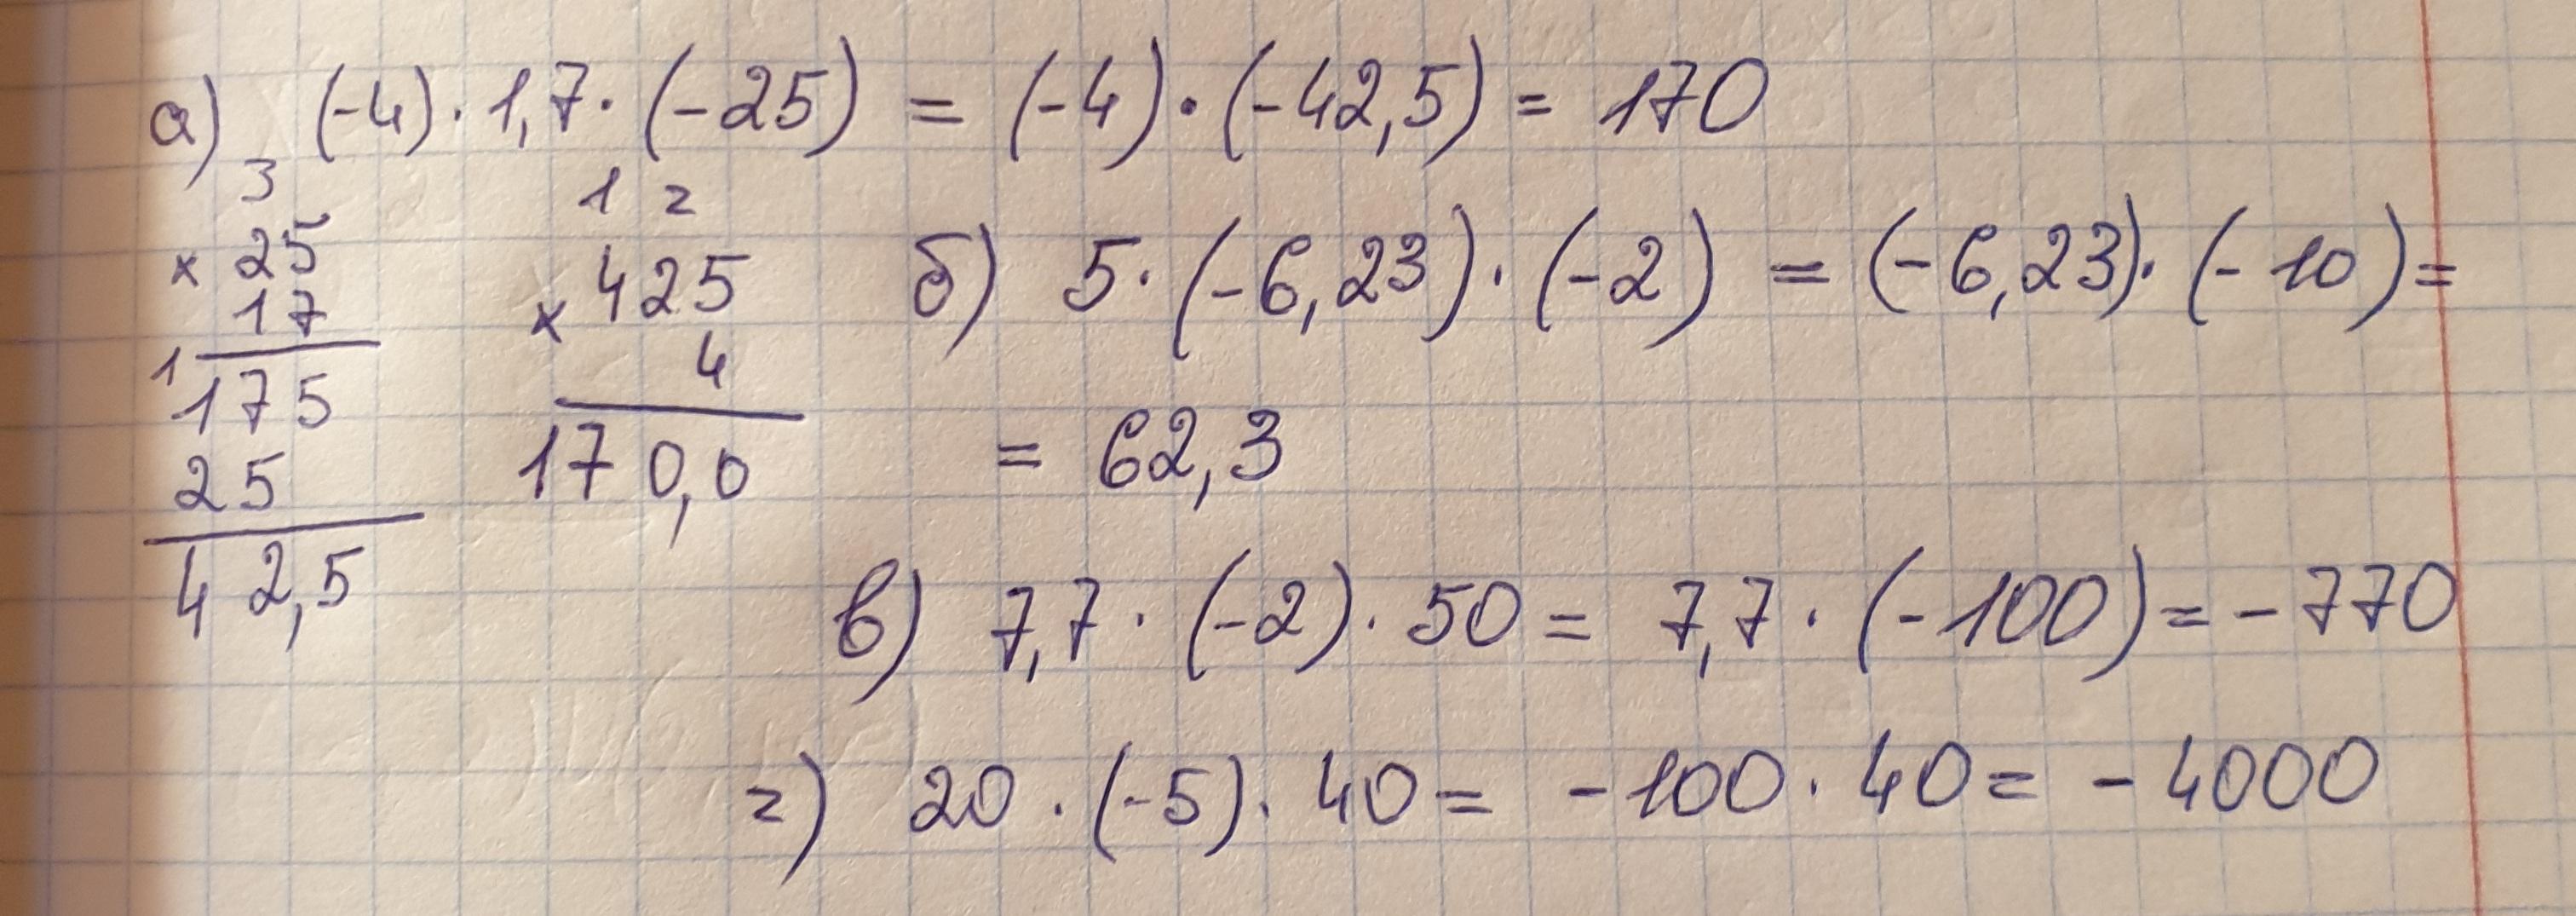 а) (-4) · 1,7 · (-25) = (-4) · (-42,5) = 170
3
× 25
17
1
175
25
42,5
1 2
× 425
4
170,0
б) 5 · (-6,23) · (-2) = (-6,23) · (-10) =
= 62,3
в) 7,7 · (-2) · 50 = 7,7 · (-100) = -770
г) 20 · (-5) · 40 = -100 · 40 = -4000